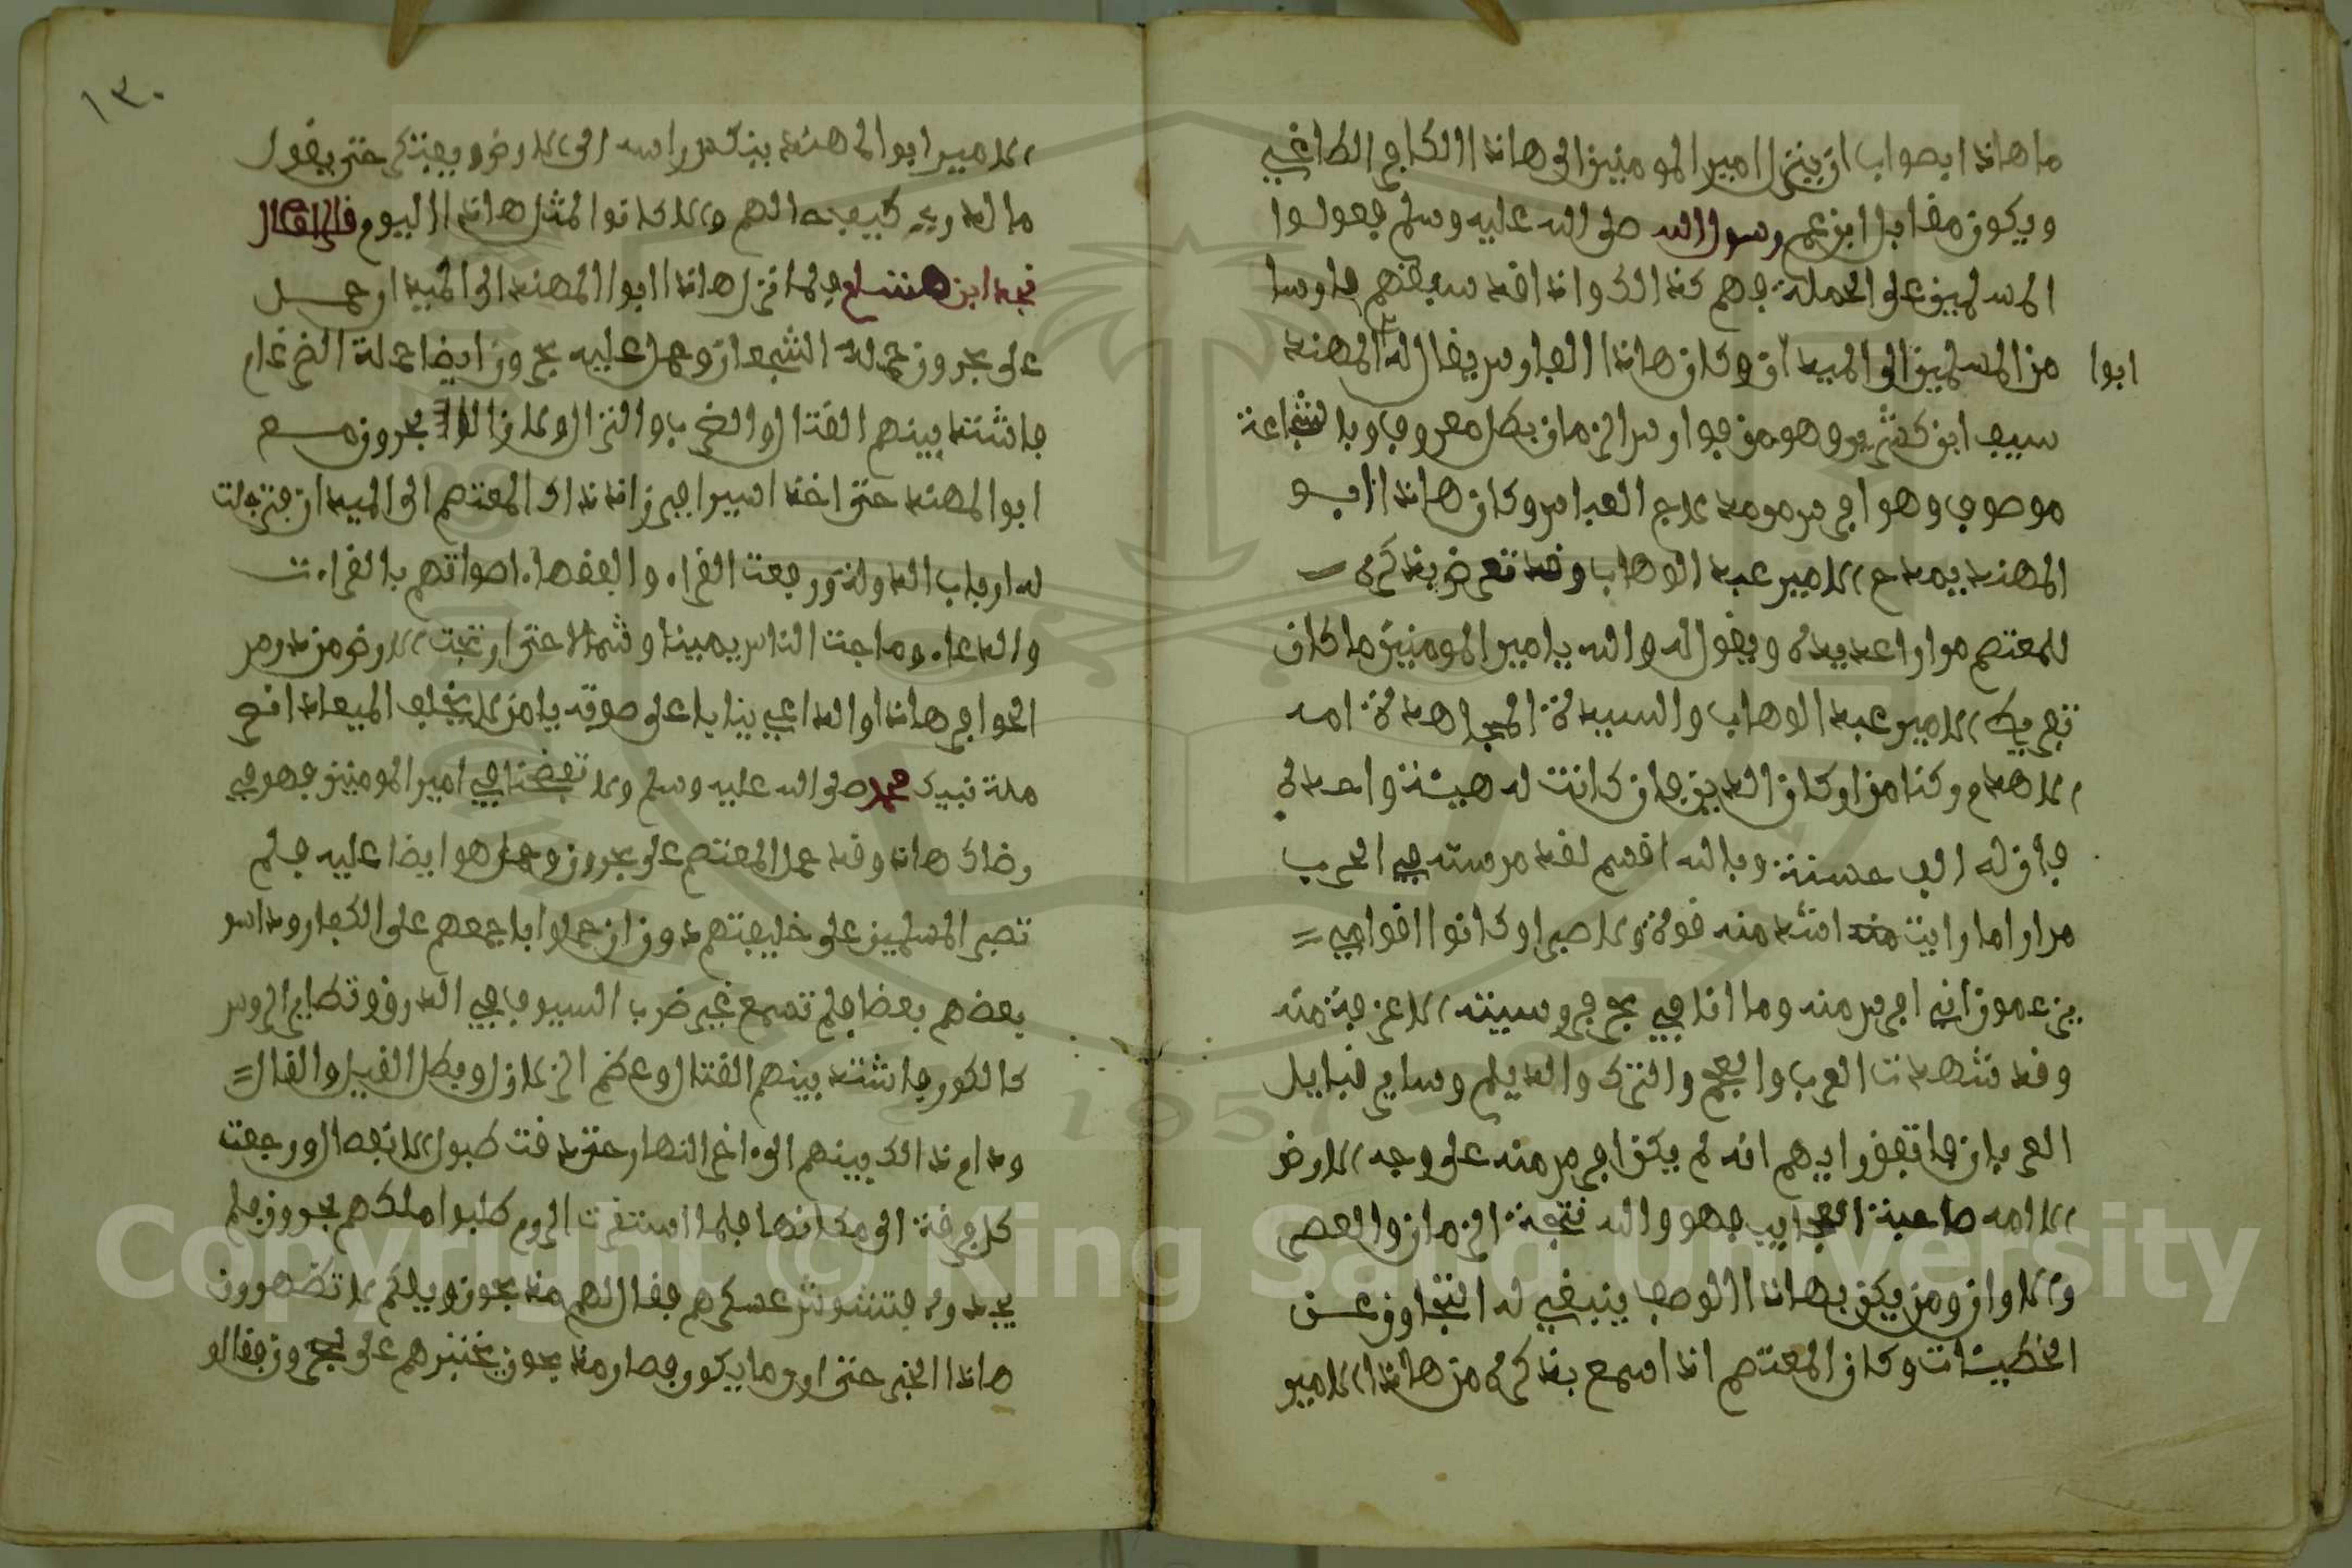 ما هاذا بصواب ان ينزل امير المومنين الى هاذا الكافر الطاغي
ويكون مقابل ابن عم رسول الله صلى الله عليه وسلم فعولوا
المسلمين على الحملة فهم كذالك واذا قد سبقهم فارسا
من المسلمين الى الميدان وكان هاذا الفارس يقال له المهند
ابوا
سيف ابن كثير وهو من فوارس الزمان بطل معروف وبالشجاعة
موصوف وهو افرس مومد تاج العباس وكان هاذا ابو
المهند يمدح الامير عبد الوهاب وقد تعرض بذكره
للمعتصم مرارا عديدة ويقول له والله يا امير المومنين ما كان
تعريك الامير عبد الوهاب والسيدة المجاهدة امه
الاهدم ركنا من اركان الدين فان كانت له هيئة واحدة
فان له الف حسنة وبالله اقسم لقد مرسته في الحرب
مرارا ما رايت اشد منه قوة ولا صبرا وكانوا اقوامي
يزعمون اني افرس منه وما انا في بحر فروسيته الا غرفة منه
وقد شهدت العرب والعجم والترك والديلم وساير قبايل
العربان فاتفق رايهم انه لم يكن افرس منه على وجه الارض
الا امه صاحبة العجايب فهو والله نتيجة الزمان والعصر
والاوان ومن يكن بهاذا الوصف ينبغي له التجاوز عن
الخطيئات وكان المعتصم اذا سمع بذكره من هاذا الامير
١٣٠
الامير ابو المهند ينكس راسه الى الارض ويفتكر حتى يقول
ما الله وريد كيف جدالهم والا كانوا لمثل هاذا اليوم قال
نجد ابن هشام فلما نزل هاذا ابوا المهند الى الميدان وحمل
على بحرون حملة الشجعان وحمل عليه بحرون ايضا حملة الضرغام
فاشتد بينهم القتال والضرب والنزال ولا زال بحرون مع
ابو المهند حتى اخذ اسيرا فبرز اذ ذاك المعتصم الى الميدان فترجلت
له ارباب الدولة ورفعت القراء والفقهاء اصواتهم بالقراءت
والدعاء وماجت الناس يمينا وشمالا حتى ارتجت الارض من دوس
الحوافر هاذا والداعي ينادي على صوته يا من لا يخلف الميعاد انصر
ملة نبيك محمد صلى الله عليه وسلم ولا تفضحنا في امير المومنين فهو في
رضاك هاذا وقد حمل المعتصم على بحرون وحمل هو ايضا عليه فلم
تصبر المسلمين على خليفتهم دون ان حملوا باجمعهم على الكفار وداسو
بعضهم بعضا فلم تسمع غير ضرب السيوف في الدرق وتطاير الروس
كالكور فاشتد بينهم القتال وعظم النزال وبطل القيل والقال
ودام ذالك بينهم الى اخر النهار حتى دقت طبول الانفصال ورجعت
كل فرقة الى مكانها فلما استقرت الروم طلبوا ملكهم بحرون فلم
يجدوه فتشوش عسكرهم فقال لهم منذ بحون ويلكم لا تظهرون
هاذا الخبر حتى ارى ما يكون فصار منذ بحون يختبرهم على بحرون فقالو